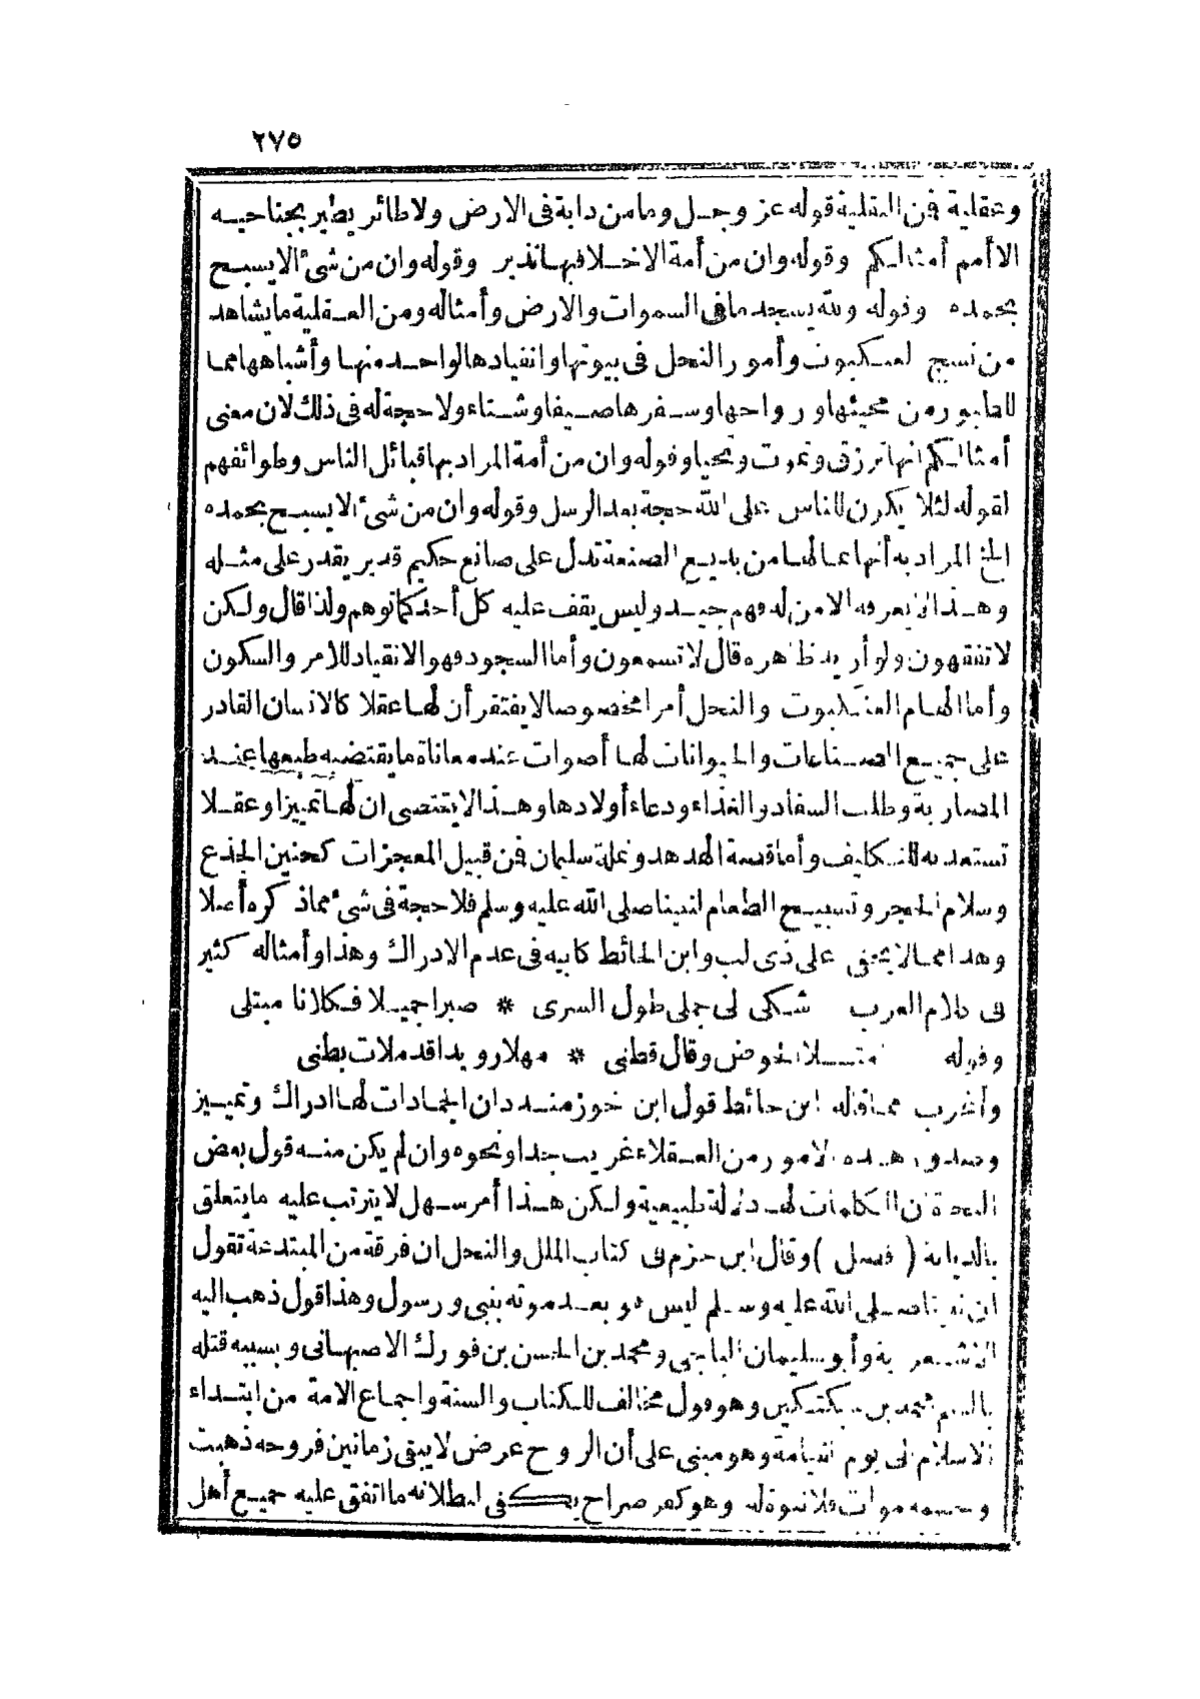 ٢٧٥
وعقلية فن النقلية قوله عز وجل وما من دابة فى الارض ولا طائر يطير بجناحيه
الا أمم أمثالكم وقوله وان من أمة الا خلا فيها نذير وقوله وان من شئ الا يسبح
بحمده وقوله ولله يسجد ما فى السموات والارض وأمثاله ومن العقلية ما يشاهد
من نسج العنكبوت وأمور النحل فى بيوتها وانقيادها لواحد منها وأشباهها مما
للطيور من مجيئها ورواحها وسفرها صيفا وشتاء ولا حجة له فى ذلك لان معنى
أمثالكم انها ترزق وتموت وتحيا وقوله وان من أمة المراد بها قبائل الناس وطوائفهم
لقوله لئلا يكون للناس على الله حجة بعد الرسل وقوله وان من شئ الا يسبح بحمده
الخ المراد به أنها بما لها من بديع الصنعة تدل على صانع حكيم قدير يقدر على مثله
وهذا لا يعرفه الا من له فهم جيد وليس يقف عليه كل أحد كما توهم ولذا قال ولكن
لا تفقهون ولو أريد ظاهره قال لا تسمعون وأما السجود فهو الانقياد للامر والسكون
وأما الهام العنكبوت والنحل أمرا مخصوصا لا يفتقر أن لها عقلا كالانسان القادر
على جميع الصناعات والحيوانات لها أصوات عند معاناة ما يقتضيه طبعها عند
المضاربة وطلب السفاد والغذاء ودعاء أولادها وهذا لا يقتضى ان لها تمييزا وعقلا
تستعد به للتكليف وأما قصة الهدهد ونملة سليمان فن قبيل المعجزات كحنين الجذع
وسلام الحجر وتسبيح الطعام لنبينا صلى الله عليه وسلم فلا حجة فى شئ مما ذكره أصلا
وهذا مما لا يخفى على ذى لب وابن الحائط كابيه فى عدم الادراك وهذا وأمثاله كثير
فى كلام العرب شكى لى جملى طول السرى * صبرا جميلا فكلانا مبتلى
وقوله امتلا الحوض وقال قطنى * مهلا رويدا قد ملات بطنى
وأغرب مما قاله ابن حائط قول ابن خوزمنددان الجمادات لها ادراك وتمييز
وصدور هذه الامور من العقلاء غريب جدا ونحوه وان لم يكن منه قول بعض
النحاة ان الكلمات لها دلالة طبيعية ولكن هذا أمر سهل لا يترتب عليه ما يتعلق
بالديانة ( فصل ) وقال ابن حزم فى كتاب الملل والنحل ان فرقة من المبتدعة تقول
ان نبينا صلى الله عليه وسلم ليس هو بعد موته بنبى ورسول وهذا قول ذهب اليه
الاشعرية وأبو سليمان الباجى ومحمد بن الحسن بن فورك الاصبهانى وبسببه قتله
بالسم محمد بن سبكتكين وهو قول مخالف للكتاب والسنة واجماع الامة من ابتداء
الاسلام الى يوم القيامة وهو مبنى على أن الروح عرض لا يبقى زمانين فروحه ذهبت
وجسمه موات فلا نبوة له وهو كفر صراح يكفى لبطلانه ما اتفق عليه جميع أهل